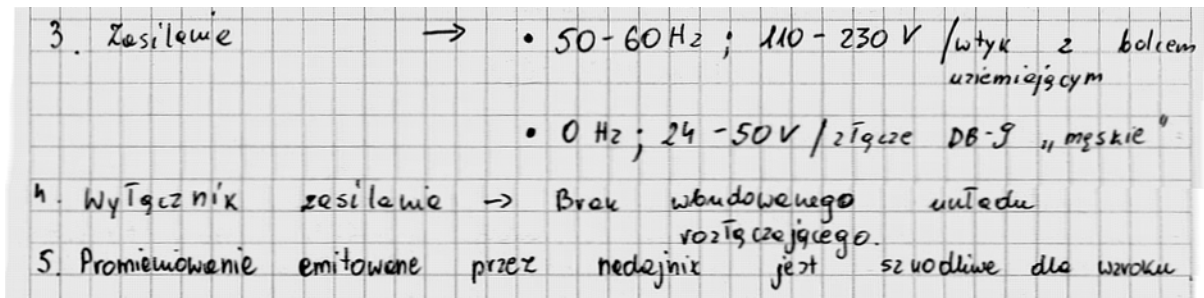 3. Zasilanie → • 50-60 Hz ; 110-230 V / wtyk z bolcem
uziemiającym
• 0 Hz ; 24-50 V / złącze DB-9 „męskie"
4. Wyłącznik zasilania → Brak wbudowanego układu
rozłączającego.
5. Promieniowanie emitowane przez nadajnik jest szkodliwe dla wzroku.